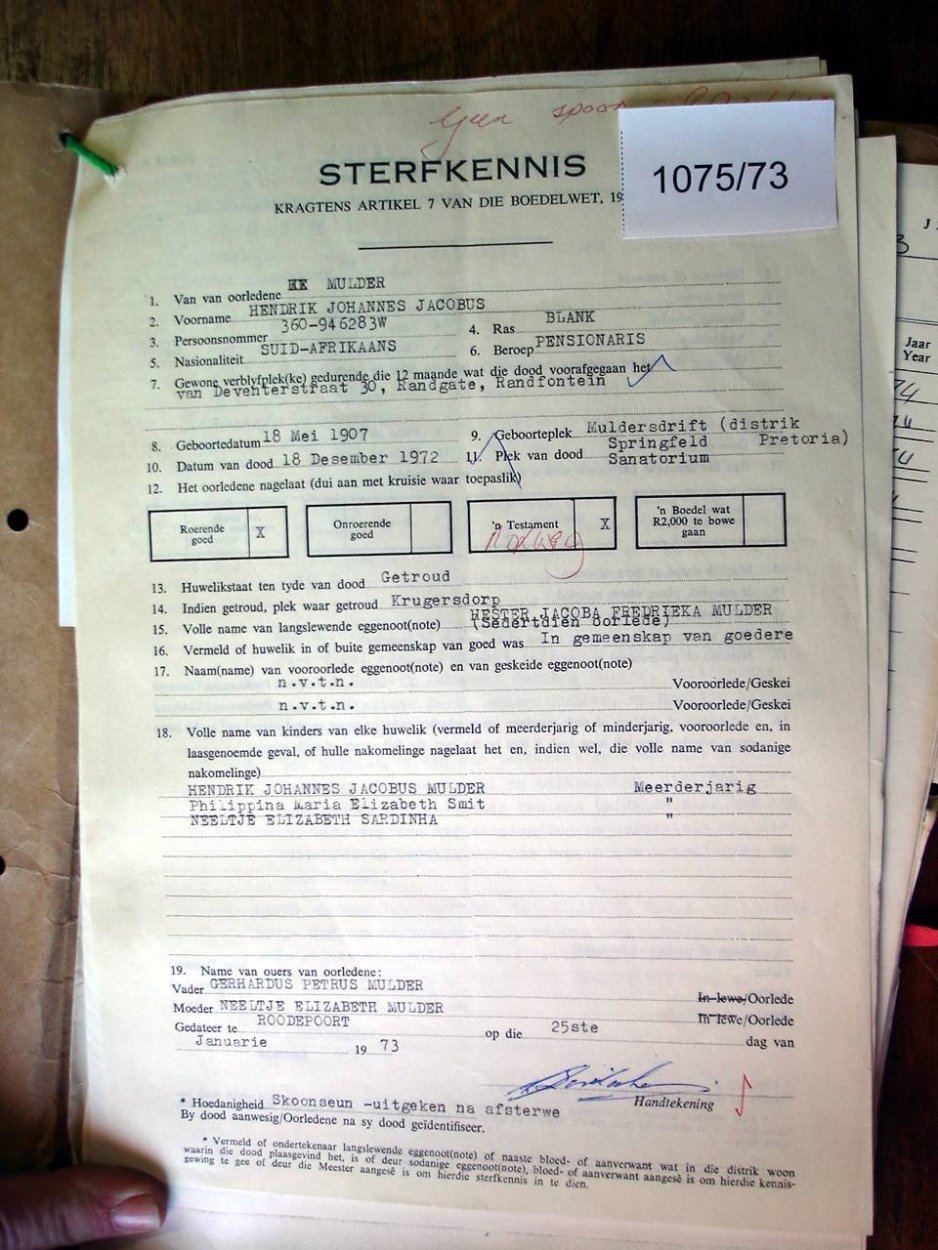 Geen spoor
STERFKENNIS
1075/73
KRAGTENS ARTIKEL 7 VAN DIE BOEDELWET, 19
1. Van van oorledene HE MULDER
2. Voorname HENDRIK JOHANNES JACOBUS
3. Persoonsnommer 360-946283W 4. Ras BLANK
5. Nasionaliteit SUID-AFRIKAANS 6. Beroep PENSIONARIS
7. Gewone verblyfplek(ke) gedurende die 12 maande wat die dood voorafgegaan het
van Deventerstraat 30, Randgate, Randfontein
8. Geboortedatum 18 Mei 1907 9. Geboorteplek Muldersdrift (distrik
Pretoria)
10. Datum van dood 18 Desember 1972 11. Plek van dood Springfeld
Sanatorium
12. Het oorledene nagelaat (dui aan met kruisie waar toepaslik)
Roerende goed X
Onroerende goed
'n Testament X
'n Boedel wat R2,000 te bowe gaan
13. Huwelikstaat ten tyde van dood Getroud
14. Indien getroud, plek waar getroud Krugersdorp
15. Volle name van langslewende eggenoot(note) HESTER JACOBA FREDRIEKA MULDER
(Sedertdien oorlede)
16. Vermeld of huwelik in of buite gemeenskap van goed was In gemeenskap van goedere
17. Naam(name) van vooroorlede eggenoot(note) en van geskeide eggenoot(note)
n.v.t.n. Vooroorlede/Geskei
n.v.t.n. Vooroorlede/Geskei
18. Volle name van kinders van elke huwelik (vermeld of meerderjarig of minderjarig, vooroorlede en, in
laasgenoemde geval, of hulle nakomelinge nagelaat het en, indien wel, die volle name van sodanige
nakomelinge)
HENDRIK JOHANNES JACOBUS MULDER Meerderjarig
Philippina Maria Elizabeth Smit "
NEELTJE ELIZABETH SARDINHA "
19. Name van ouers van oorledene:
Vader GERHARDUS PETRUS MULDER In lewe/Oorlede
Moeder NEELTJE ELIZABETH MULDER In lewe/Oorlede
Gedateer te ROODEPOORT op die 25ste dag van
Januarie 19 73
Handtekening
* Hoedanigheid Skoonseun -uitgeken na afsterwe
By dood aanwesig/Oorledene na sy dood geïdentifiseer.
* Vermeld of ondertekenaar langslewende eggenoot(note) of naaste bloed- of aanverwant wat in die distrik woon
waarin die dood plaasgevind het, is of deur sodanige eggenoot(note), bloed- of aanverwant aangesê is om hierdie kennis-
gewing te gee of deur die Meester aangesê is om hierdie sterfkennis in te dien.
Jaar
Year